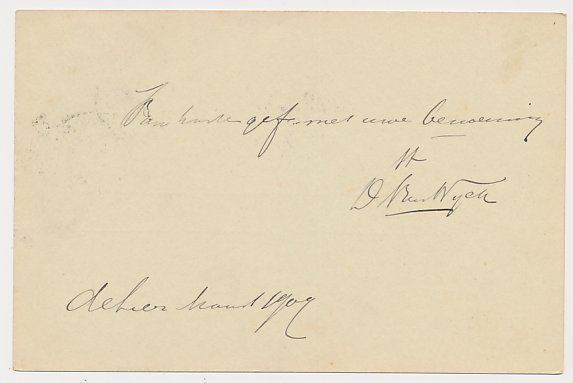 Van harte gef. met uwe benoeming
tt
D Van Wyck
de Lier Maart 1909